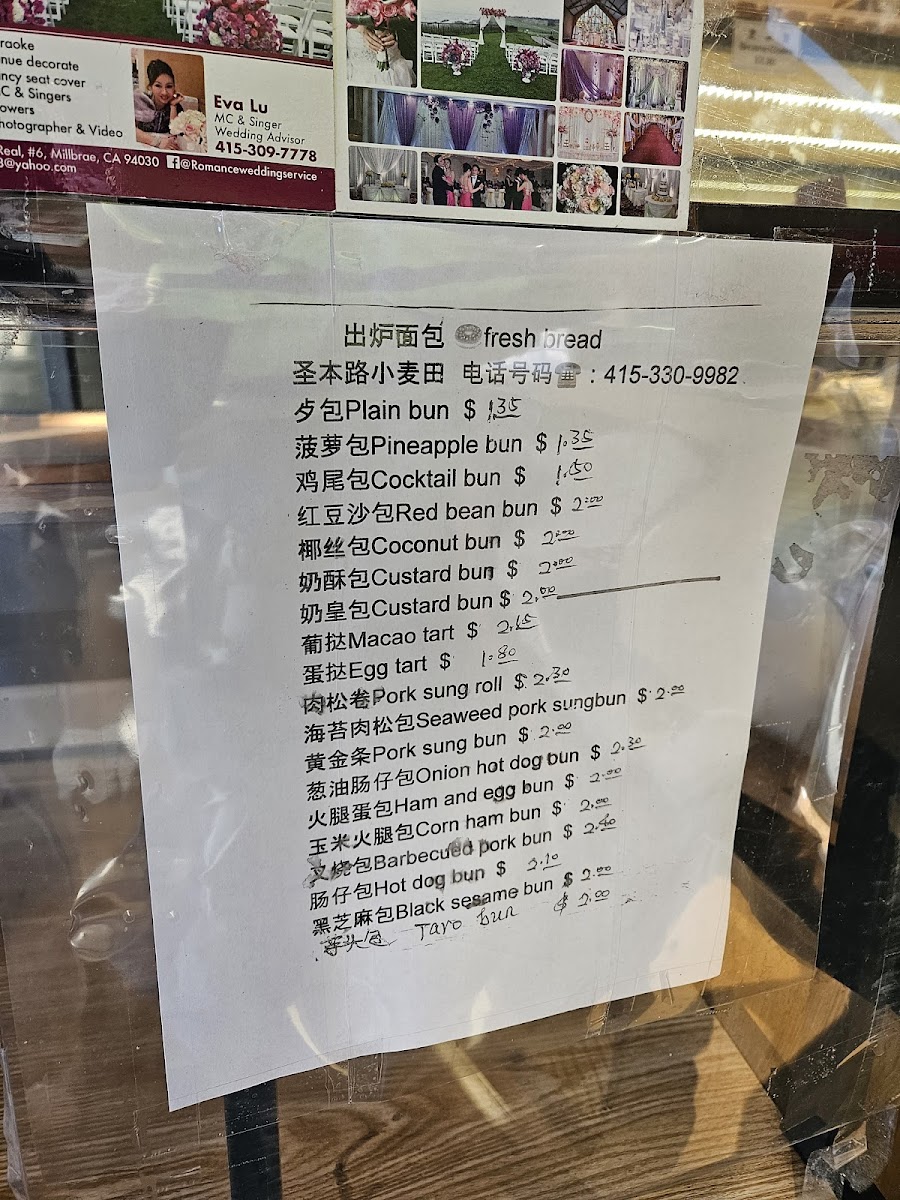 raoke
nue decorate
ncy seat cover
C & Singers
owers
hotographer & Video
Eva Lu
MC & Singer
Wedding Advisor
415-309-7778
Real, #6, Millbrae, CA 94030 @Romanceweddingservice
8@yahoo.com
出炉面包 fresh bread
圣本路小麦田 电话号码☎：415-330-9982
歺包Plain bun $ 1.35
菠萝包Pineapple bun $ 1.35
鸡尾包Cocktail bun $ 1.50
红豆沙包Red bean bun $ 2.00
椰丝包Coconut bun $ 2.00
奶酥包Custard bun $ 2.00
奶皇包Custard bun $ 2.00
葡挞Macao tart $ 2.15
蛋挞Egg tart $ 1.80
肉松卷Pork sung roll $ 2.30
海苔肉松包Seaweed pork sungbun $ 2.00
黄金条Pork sung bun $ 2.00
葱油肠仔包Onion hot dog bun $ 2.30
火腿蛋包Ham and egg bun $ 2.00
玉米火腿包Corn ham bun $ 2.00
叉烧包Barbecued pork bun $ 2.40
肠仔包Hot dog bun $ 2.10
黑芝麻包Black sesame bun $ 2.00
芋头包 Taro bun $ 2.00